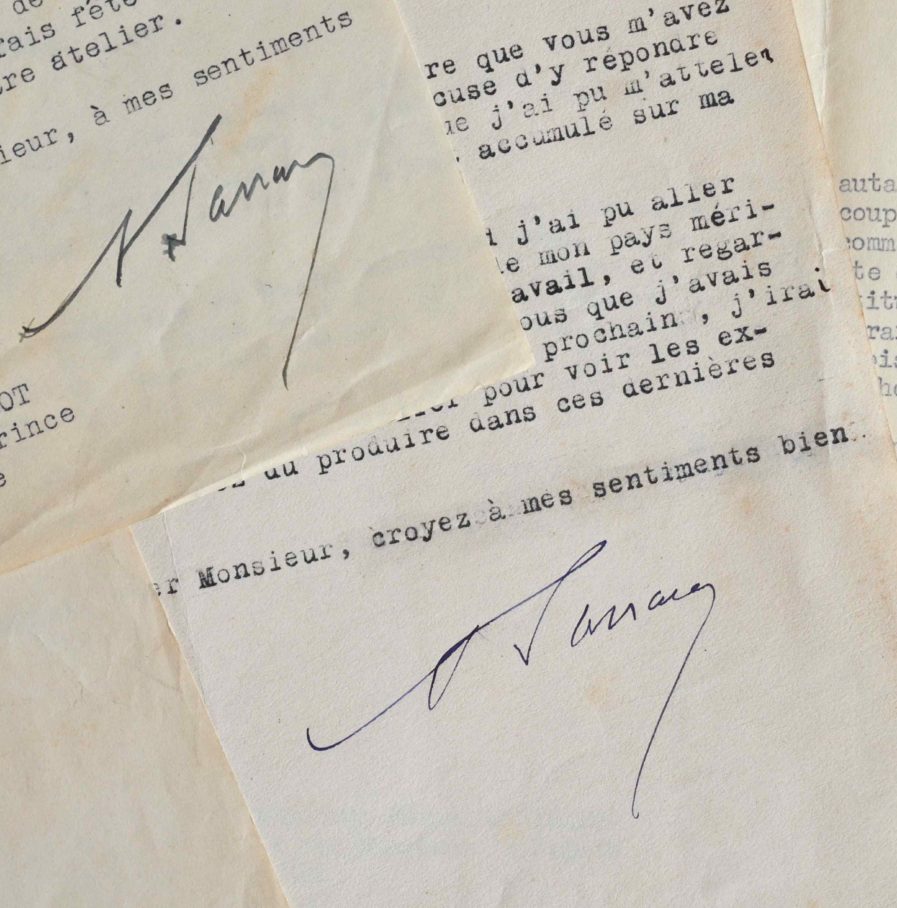 de
fais fête
tre atelier.
ieur, à mes sentiments
A Sarraut
OT
rince
e
re que vous m'avez
cuse d'y répondre
ue j'ai pu m'atteler
accumulé sur ma
i j'ai pu aller
e mon pays méri-
avail, et regar-
ous que j'avais
prochain, j'irai
pour voir les ex-
ez du produire dans ces dernières
er Monsieur, croyez à mes sentiments bien
A Sarraut
auta
coup
comm
te
itu
ra
is
he